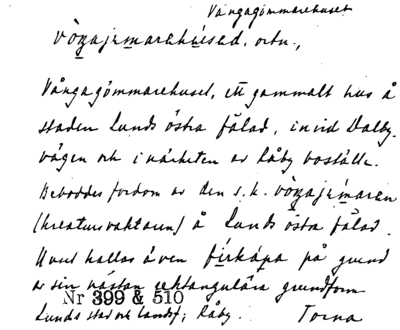 Vångagömmarehuset
vògajemarehúsed, ortn.,
Vångagömmarehuset, ett gammalt hus å
staden Lunds östra fälad, invid Dalby-
vägen och i närheten av Råby boställe.
Beboddes fordom av den s.k. vògajémaren
(kreatursvaktaren) å Lunds östra fälad.
Huset kallas även firkápa på grund
av sin nästan rektangulära grundform
Nr 399 & 510
Lunds stad och landsf; Råby. Torna